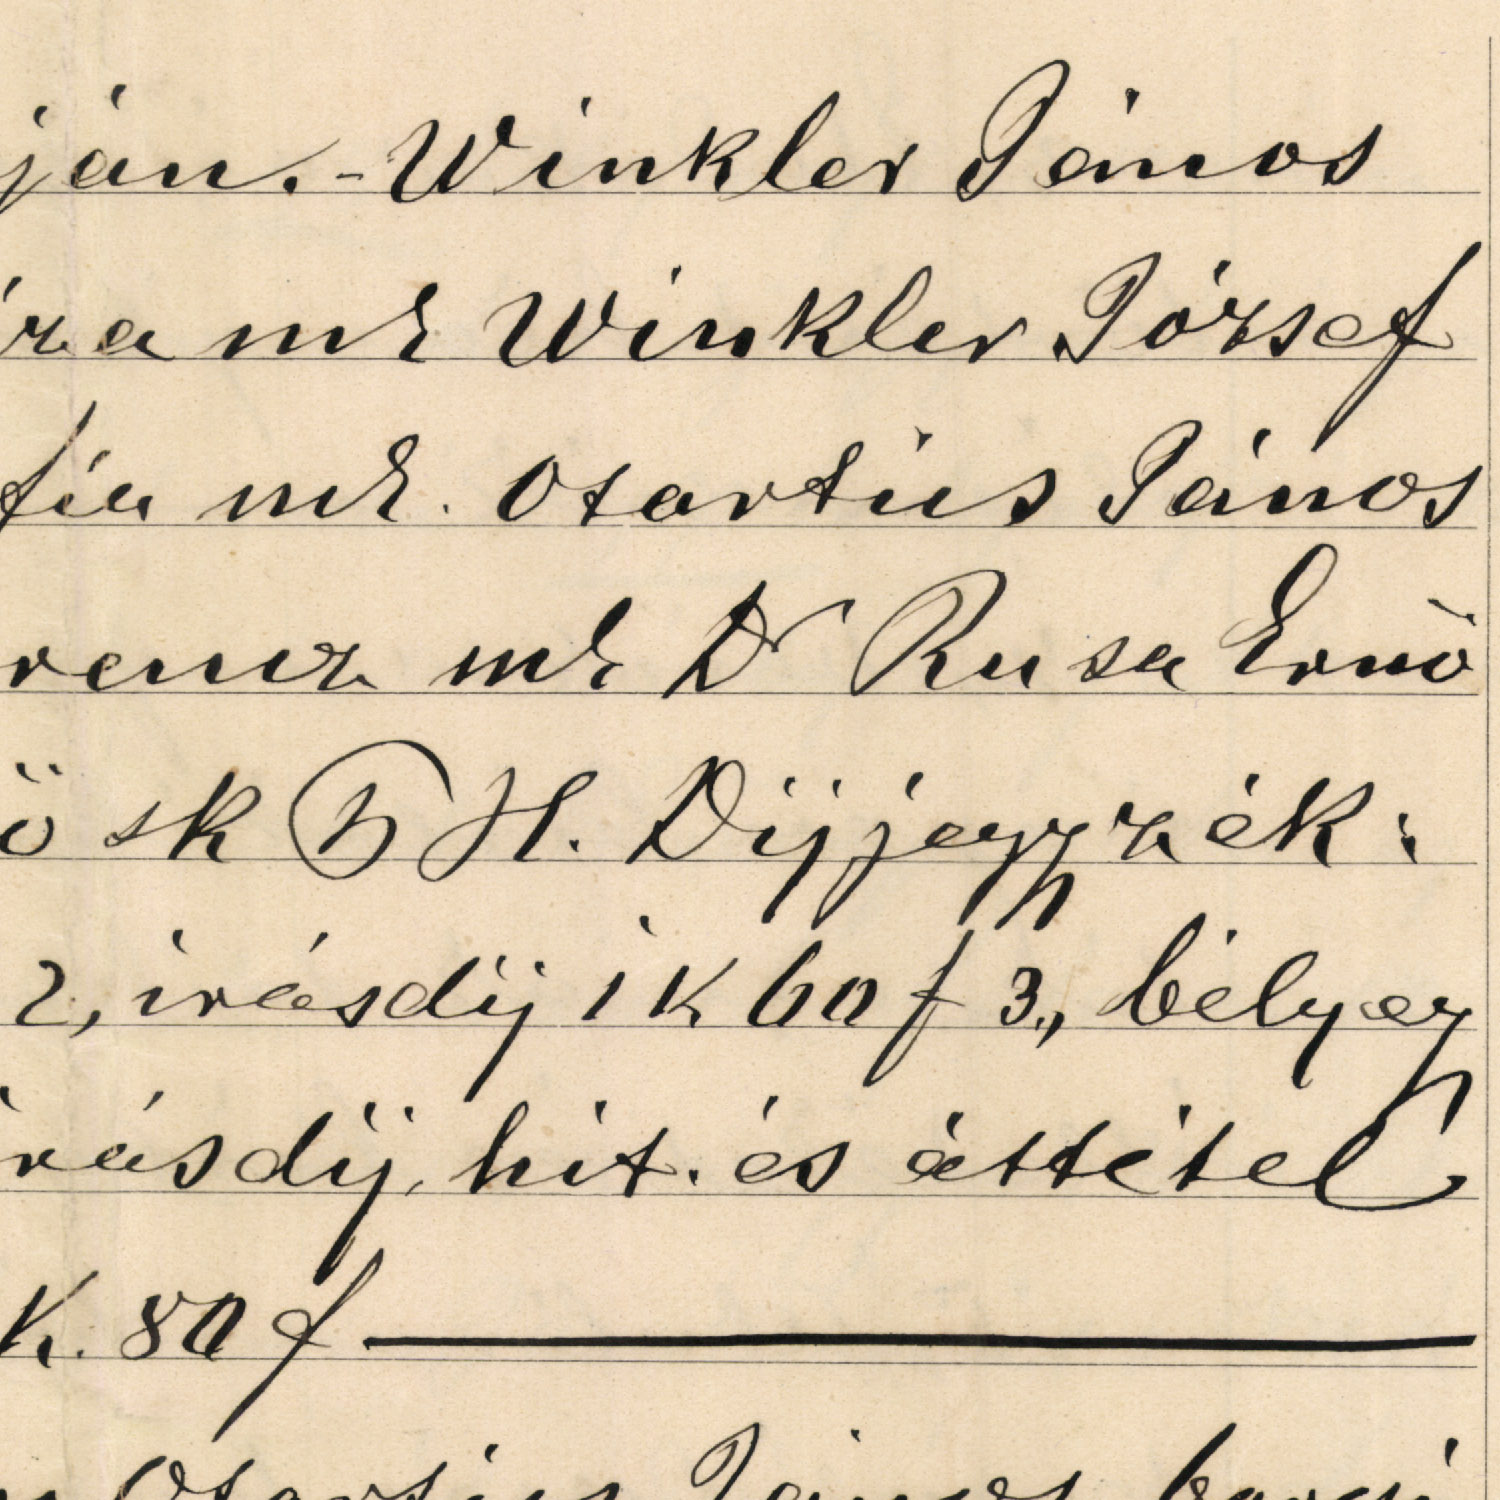 ján. - Winkler János
ra mk Winkler József
fia mk. Otartius János
rencz mk Dr Rusa Ernő
ő sk P H. Díjjegyzék:
2, irásdíj 1 K 60 f 3., bélyeg
rásdíj, hit. és áttétel
K. 80 f
Otartius János borsi